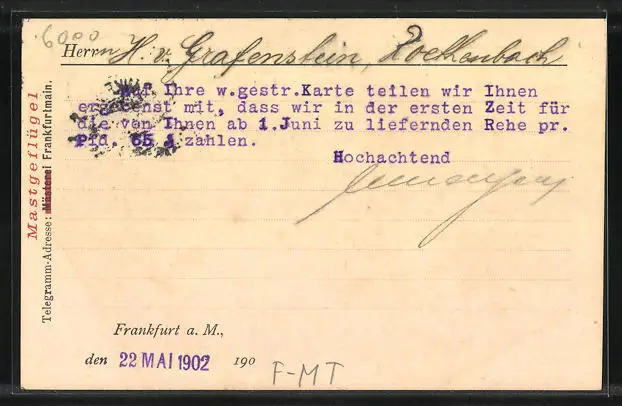 6000
Herrn H. v. Grafenstein, Rothenbach
Auf Ihre w.gestr.Karte teilen wir Ihnen
ergebenst mit, dass wir in der ersten Zeit für
die von Ihnen ab 1.Juni zu liefernden Rehe pr.
Pfd. 65 zahlen.
Hochachtend
Mastgeflügel
Telegramm-Adresse: Mästerei Frankfurtmain.
Frankfurt a. M.,
den 22 MAI 1902 190
F-MT